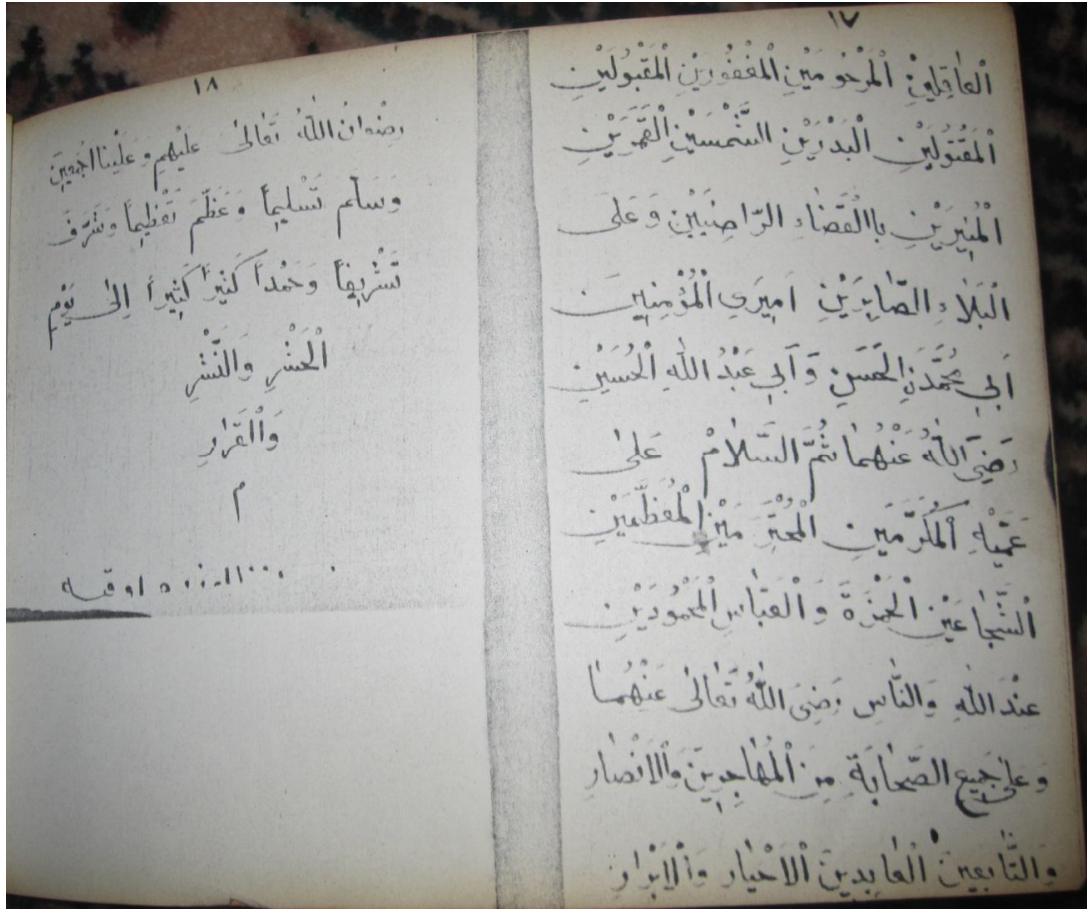 ١٧
الْعَاقِلِينْ الْمَرْحُومَيْنِ الْمَغْفُورَيْنِ الْمَقْبُولَيْنِ
الْمَقْتُولَيْنِ الْبَدْرَيْنِ الشَّمْسَيْنِ الْقَمَرَيْنِ
الْمُنِيرَيْنِ بِاالْقَضَاءِ الرَّاضِيَيْنِ وَعَلَى
الْبَلَاءِ الصَّابِرَيْنِ اَمِيرَىِ الْمُؤْمِنِينَ
اَبِى مُحَمَّدَنِ الْحَسَنِ وَ اَبِى عَبْدُ اللّٰهِ الْحُسَيْنِ
رَضِىَ اللّٰهُ عَنْهُمَا ثُمَّ السَّلَامْ عَلَى
عَمَّيْهِ الْمُكَرَّمَيْنِ الْمُحْتَرَمَيْنِ الْمُعَظَّمَيْنِ
الشُّجَاعَيْنِ الْحَمْزَةَ وَ الْعَبَّاسِ الْمَحْمُودَيْنِ
عِنْدَ اللّٰهِ وَالنَّاسِ رَضِىَ اللّٰهُ تَعَالٰى عَنْهُمَا
وَ عَلٰى جَمِيعِ الصَّحَابَةِ مِنَ الْمُهَاجِرِينَ وَالْاَنْصَارِ
وَالتَّابِعِينْ الْعَابِدِينَ الْاَخْيَارِ وَالْاَبْرَارِ
١٨
رِضْوَانُ اللّٰهُ تَعَالٰى عَلَيْهِمْ وَ عَلَيْنَا اَجْمَعِينَ
وَسَلَّم تَسْلِيمًا وَعَظَّمَ تَعْظِيمًا وَشَرَّفَ
تَشْرِيفًا وَحَمْدًا كَثِيرًا كَثِيرًا اِلٰى يَوْمِ
الْحَشْرِ وَالنَّشْرِ
وَالْقَرَارِ
م